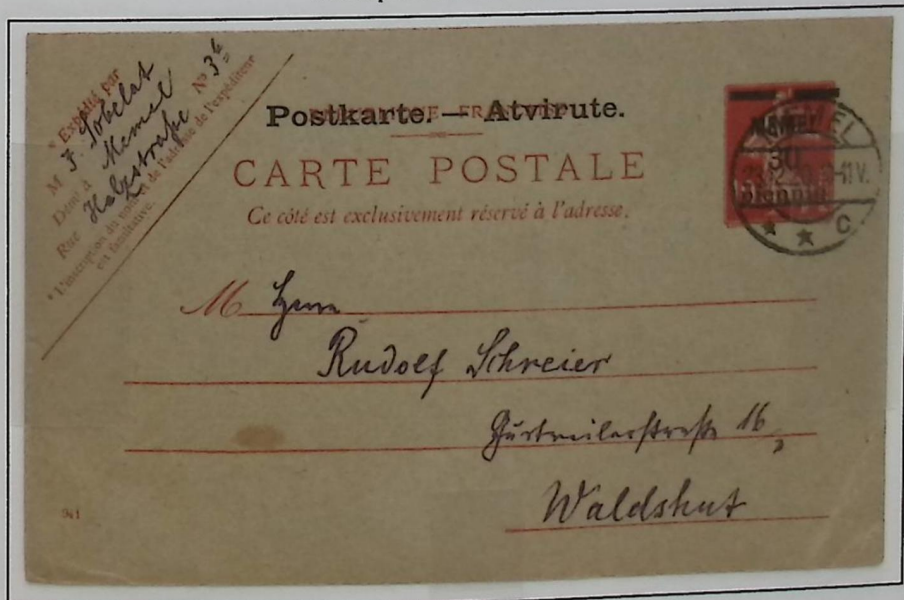 * Expédié par
M J. Sobelat
Demt à Memel
Rue Holzstraße No 3b
* L'inscription du nom et de l'adresse de l'expéditeur
est facultative.
RÉPUBLIQUE FRANÇAISE
Postkarte. — Atvirute.
CARTE POSTALE
Ce côté est exclusivement réservé à l'adresse.
MEMEL
30
pfennig
MEMEL
11V.
* * C
M Herrn
Rudolf Schreier
Gurtweilerstraße 16,
Waldshut